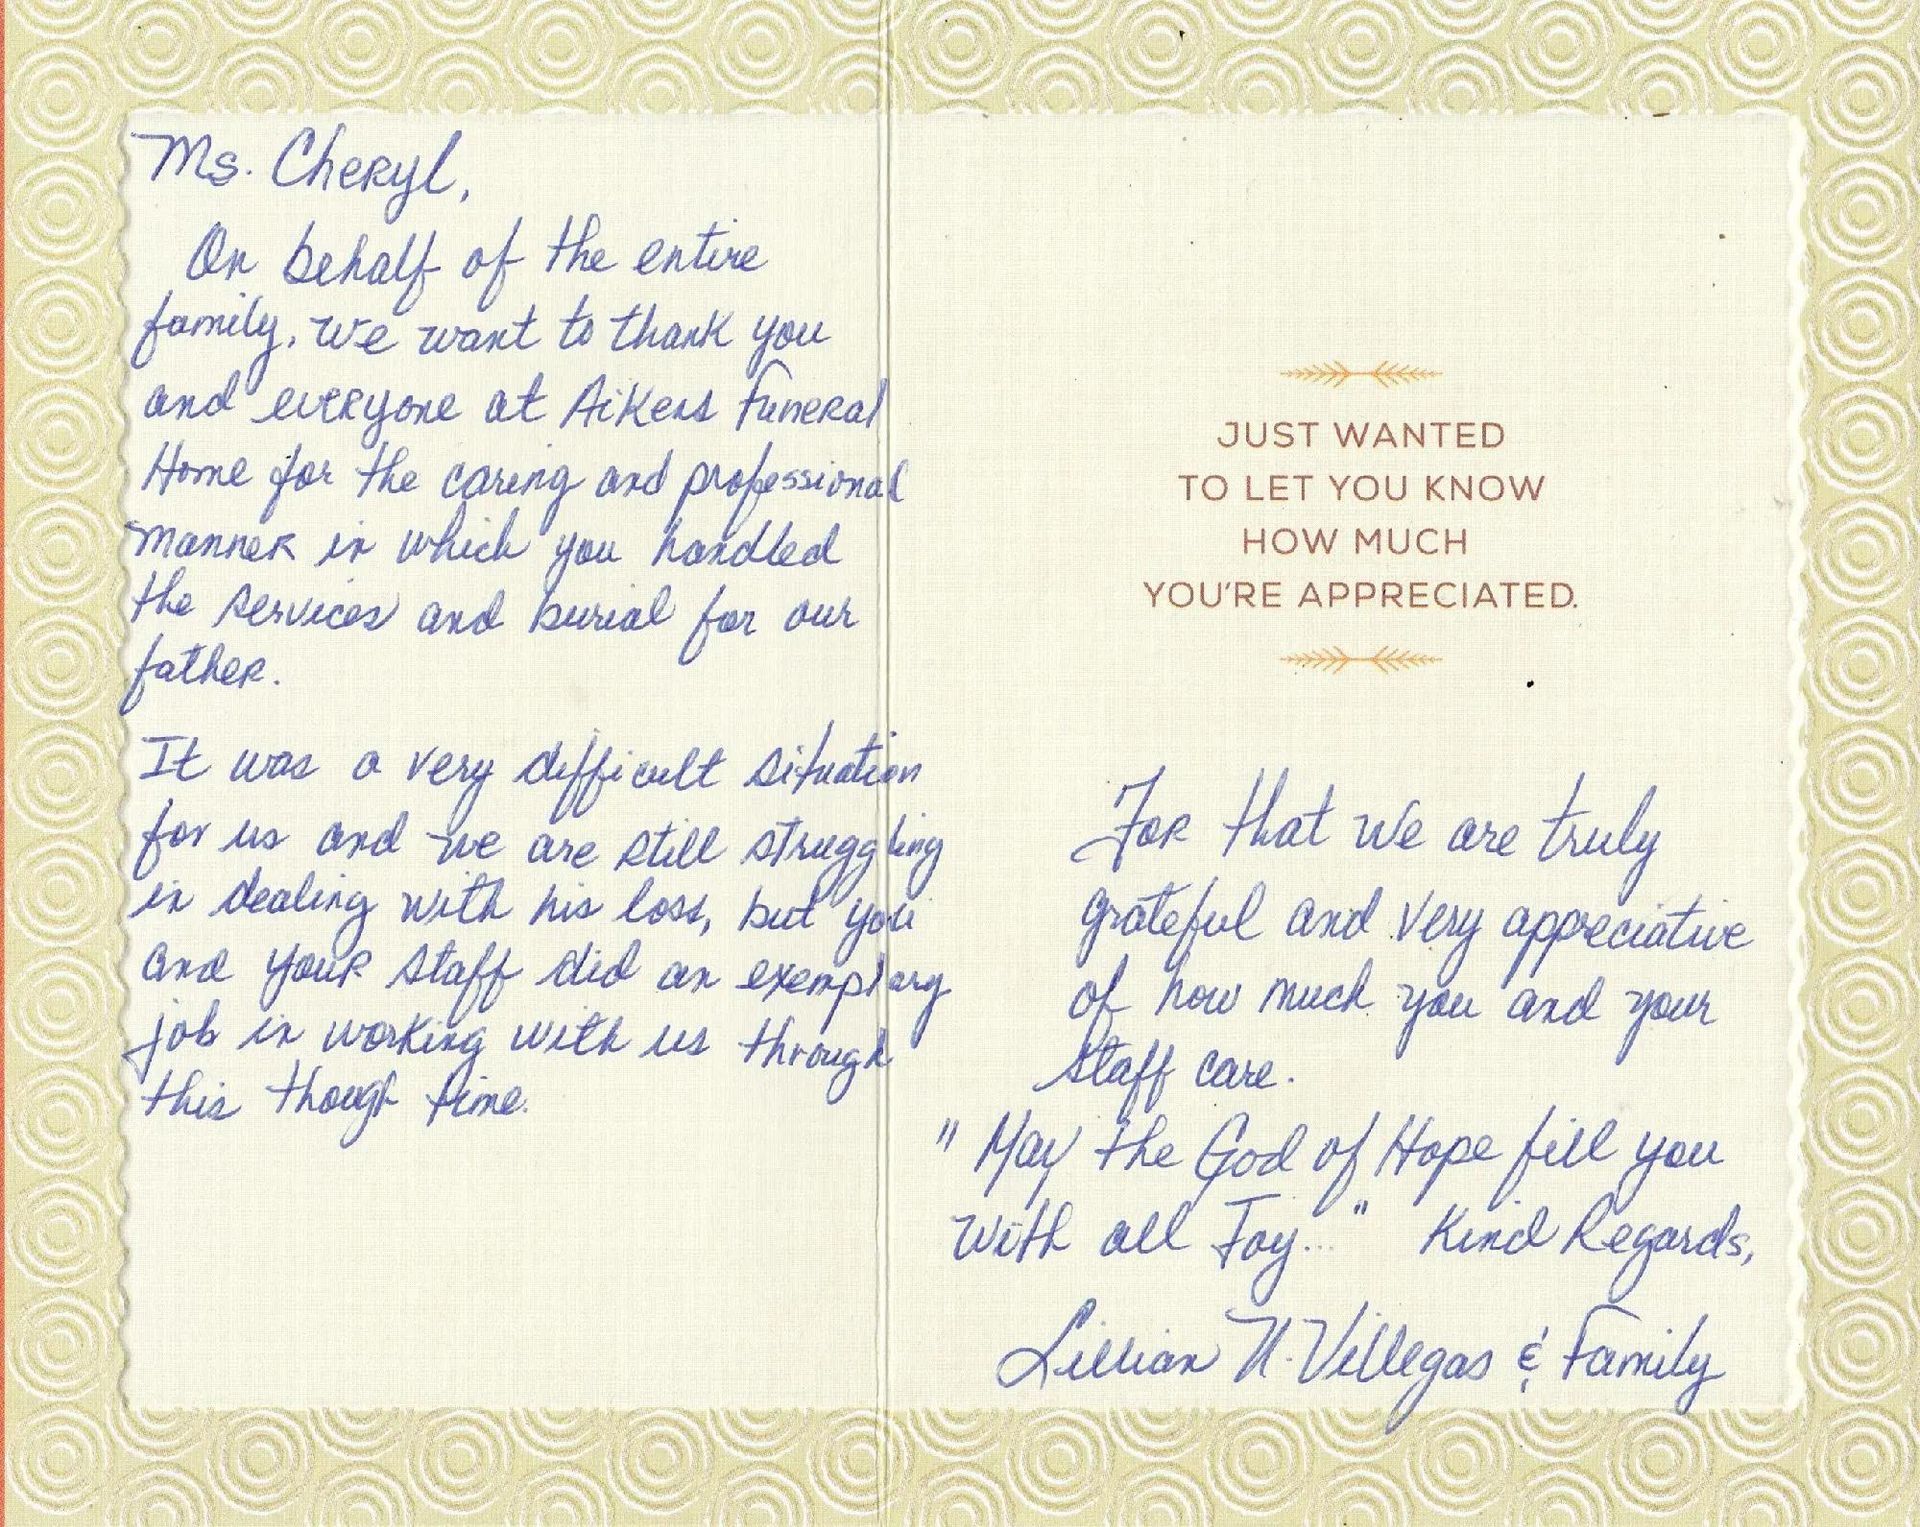 Ms. Cheryl,
On behalf of the entire
family, we want to thank you
and everyone at Aikens Funeral
Home for the caring and professional
manner in which you handled
the services and burial for our
father.
It was a very difficult situation
for us and we are still struggling
in dealing with his loss, but you
and your staff did an exemplary
job in working with us through
this though time.
JUST WANTED
TO LET YOU KNOW
HOW MUCH
YOU'RE APPRECIATED.
For that we are truly
grateful and very appreciative
of how much you and your
staff care.
"May the God of Hope fill you
with all Joy..." Kind Regards,
Lillian N. Villegas & Family